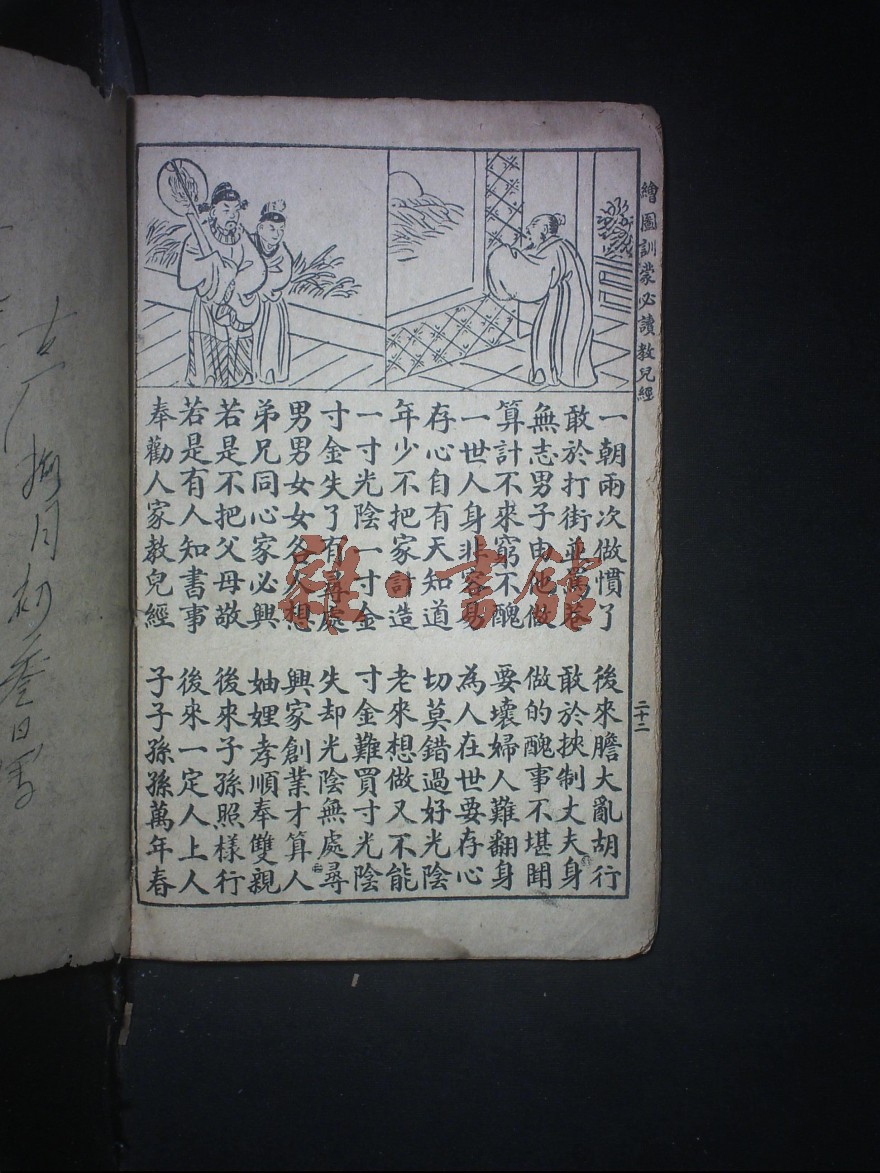 繪圖訓蒙必讀教兒經
二十二
一朝兩次做慣了 後來膽大亂胡行
敢於打街並罵巷 敢於挾制丈夫身
無志男子由他做 做的醜事不堪聞
算計不來窮不醜 要壞婦人難翻身
一世人身非容易 為人在世要存心
存心自有天知道 切莫錯過好光陰
年少不把家計造 老來想做又不能
一寸光陰一寸金 寸金難買寸光陰
寸金失了有尋處 失却光陰無處尋
男男女女各人想 興家創業才算人
弟兄同心家必興 妯娌孝順奉雙親
若是不把父母敬 後來子孫照樣行
若是有人知書事 後來一定人上人
奉勸人家教兒經 子子孫孫萬年春
雜·書館
月初叁日